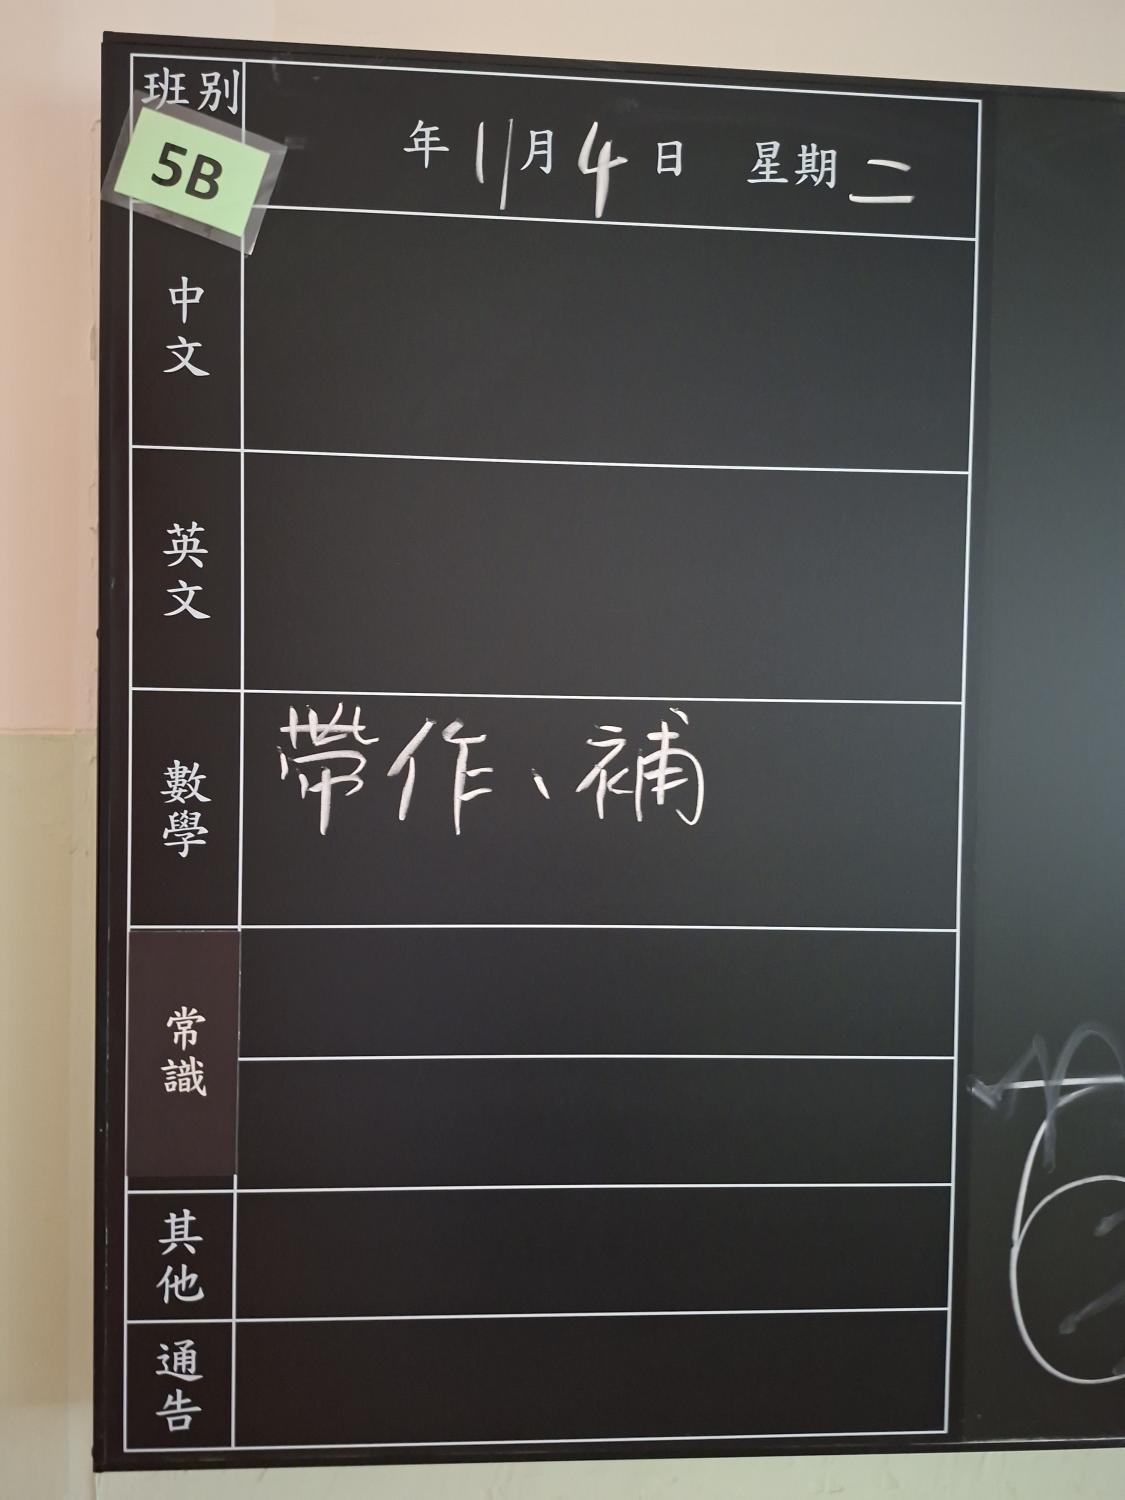 班別
5B
年 11月 4 日 星期 二
中文
英文
數學
帶作、補
常識
其他
通告